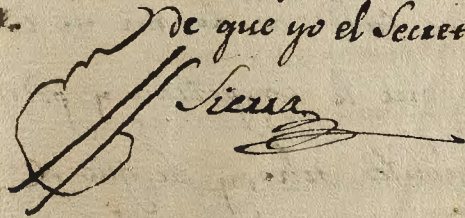 de que yo el Secret
Sierra